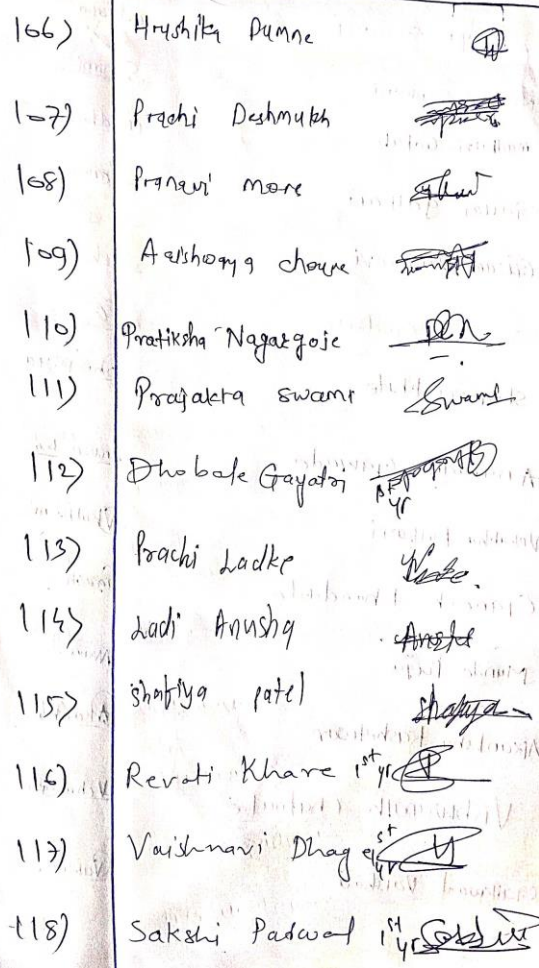 106) Hrushika Dumne
107) Prachi Deshmukh
108) Pranavi more
109) Aaishwarya choure
110) Pratiksha Nagargoje
111) Prajakta swami Swami
112) Dhobale Gayatri 1st yr
113) Prachi Ladke
114) Ladi Anusha
115) Shafiya patel Shafiya
116) Revati Khare 1st yr
117) Vaishnavi Dhage 1st yr
118) Sakshi Padwal 1st yr